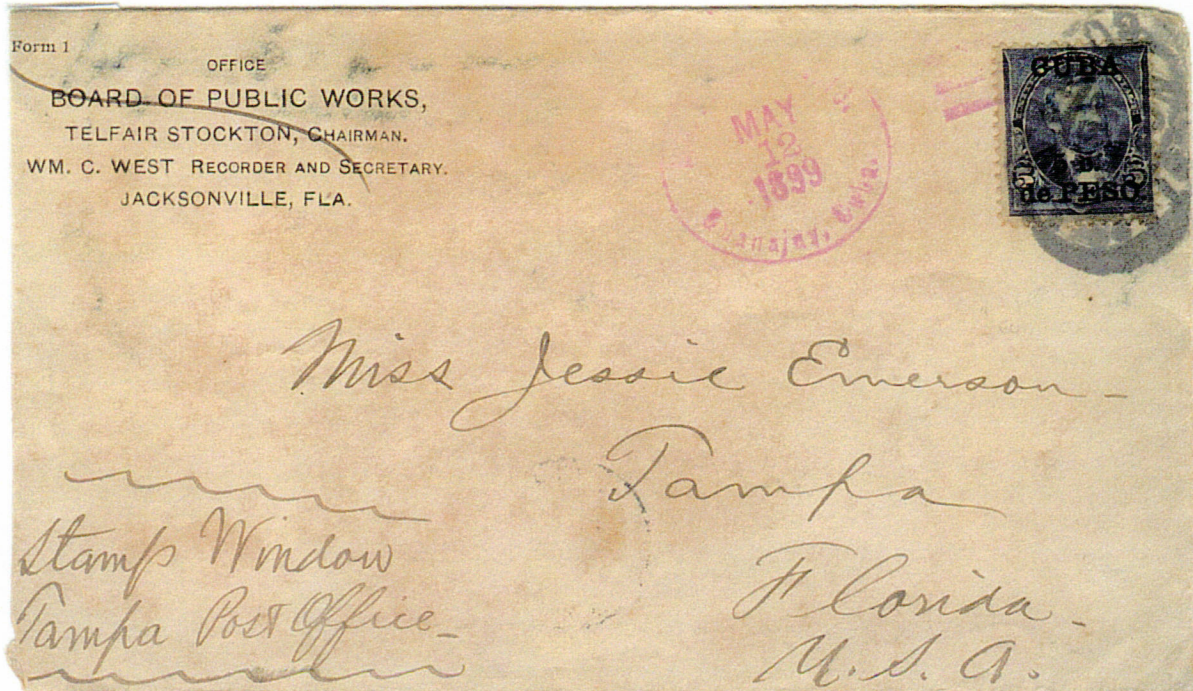 Form 1
OFFICE
BOARD OF PUBLIC WORKS,
TELFAIR STOCKTON, CHAIRMAN.
WM. C. WEST RECORDER AND SECRETARY.
JACKSONVILLE, FLA.
MAY
12
1899
Guanajay, Cuba.
CUBA
de PESO
Miss Jessie Emerson-
Tampa
Florida-
U.S.A.
Stamp Window
Tampa Post Office-